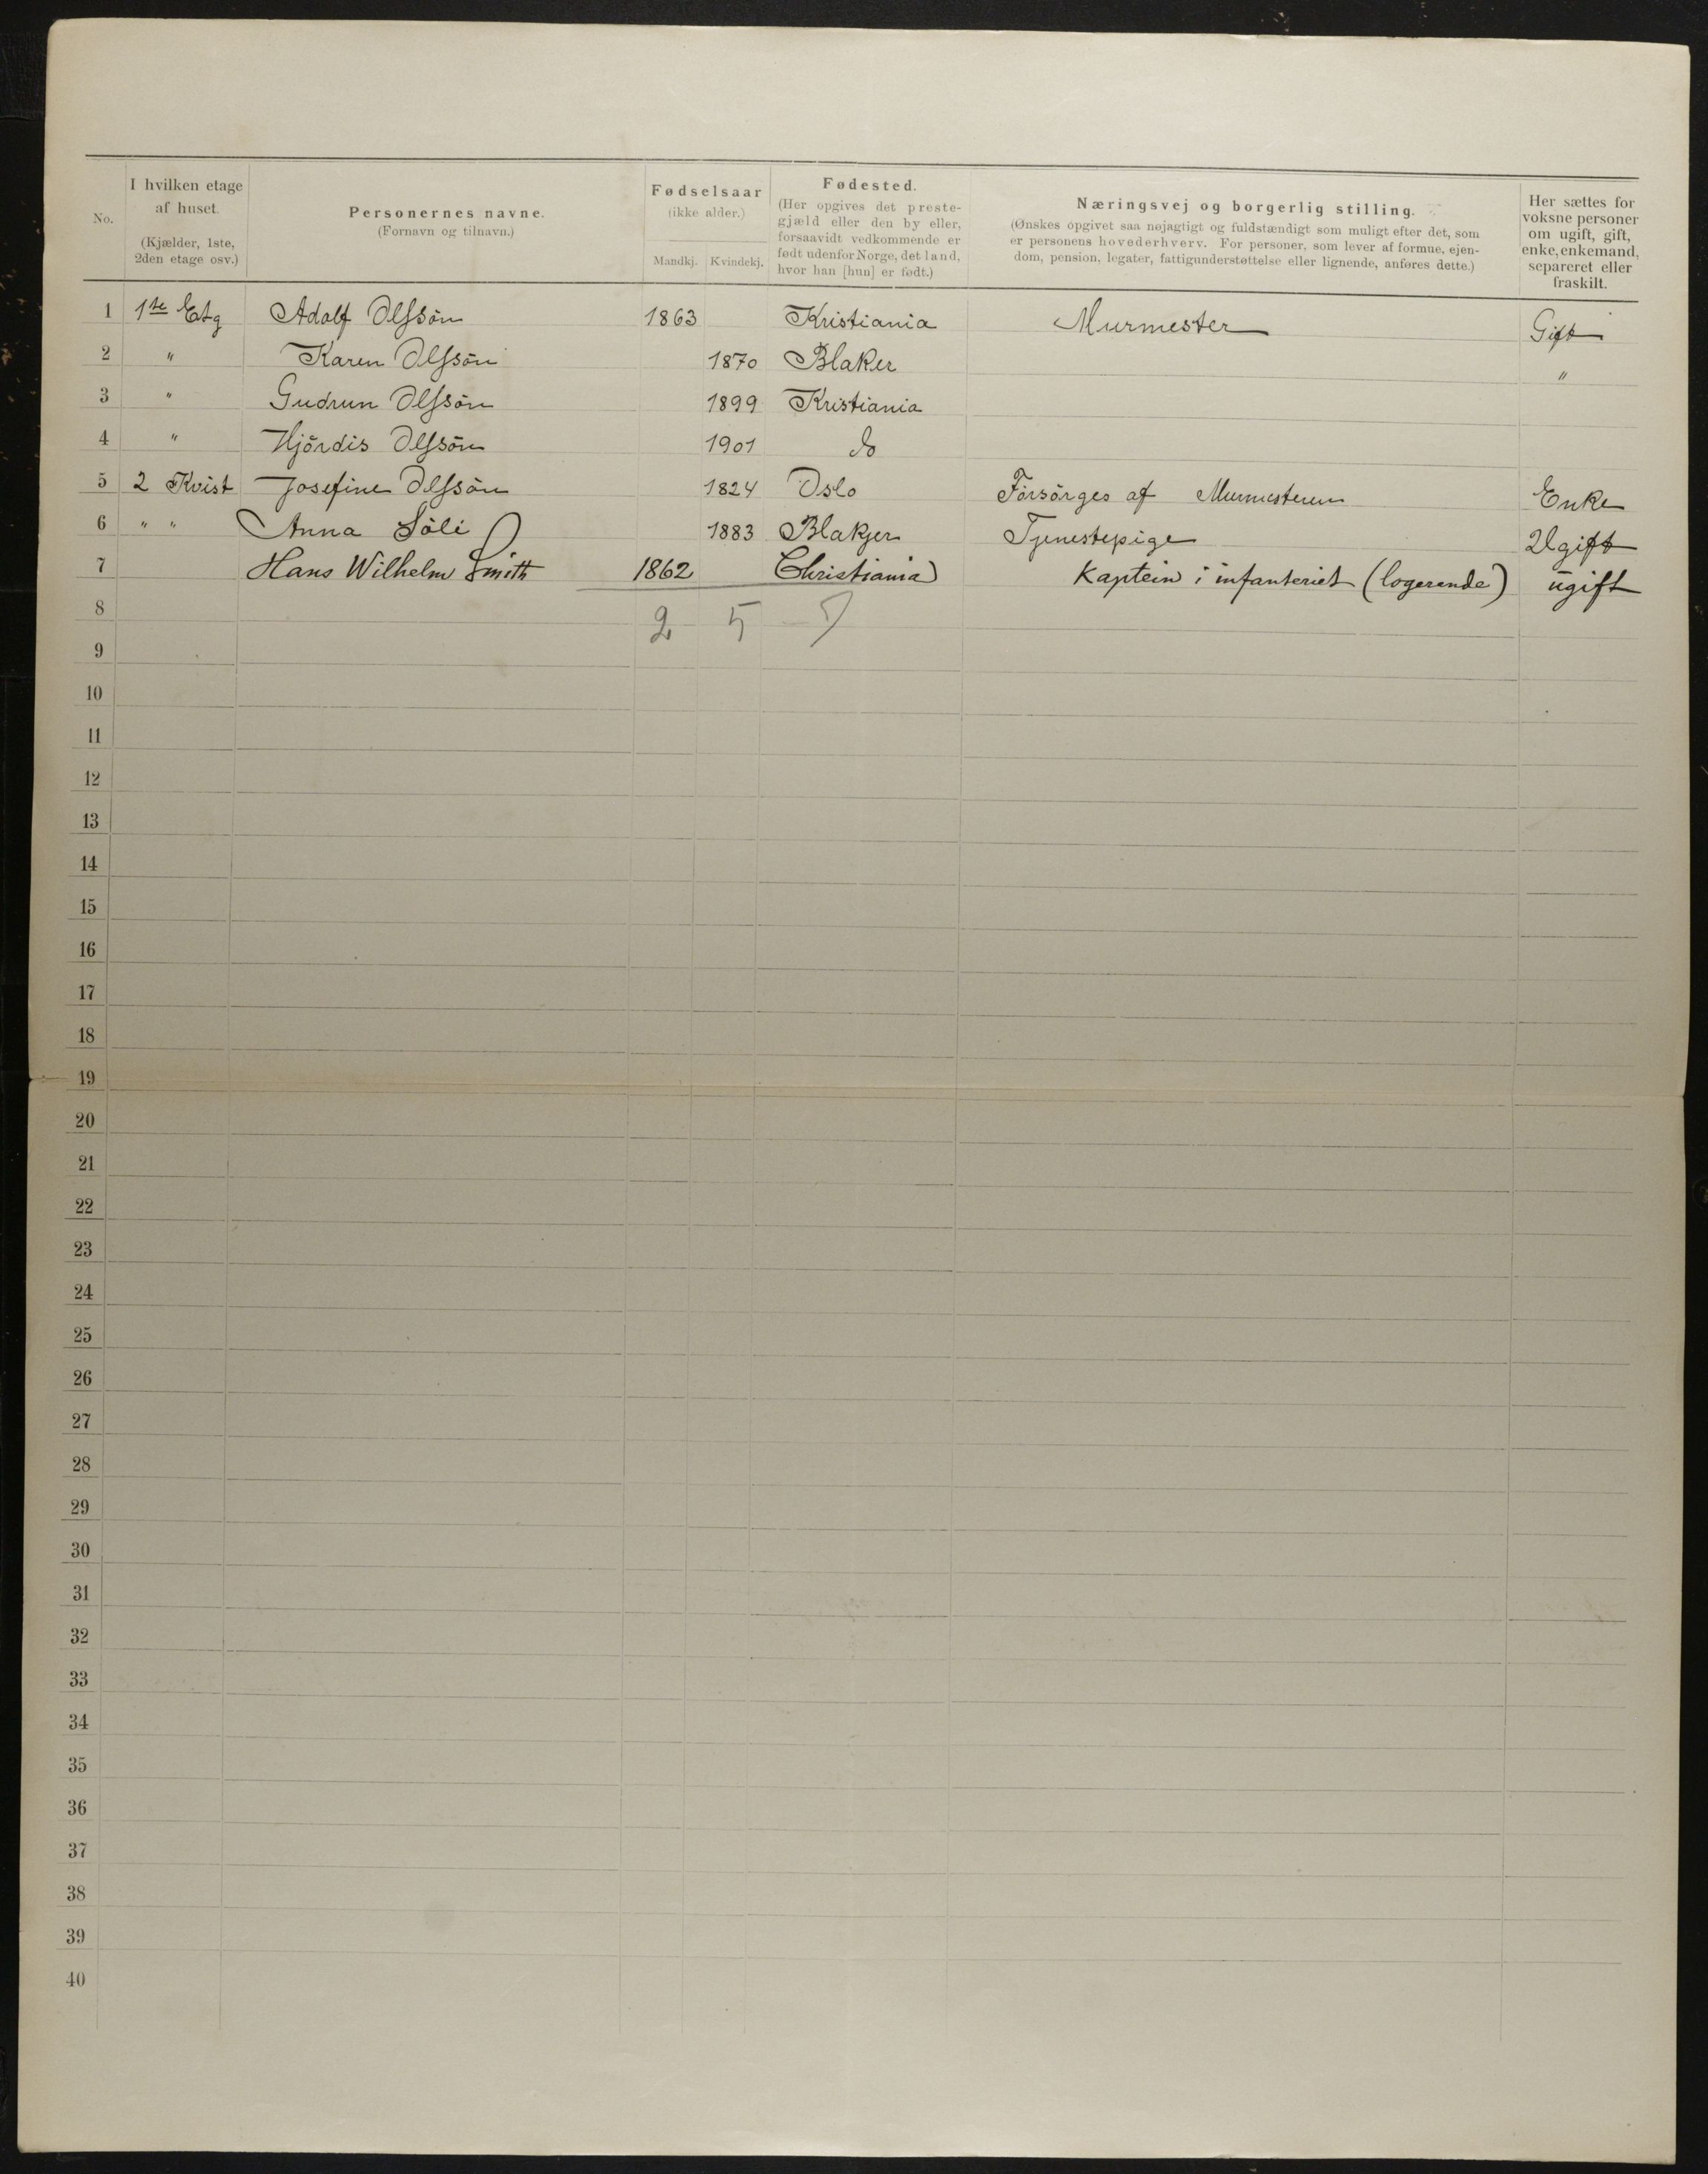 No.
I hvilken etage af huset. (Kjælder, 1ste, 2den etage osv.)
Personernes navne. (Fornavn og tilnavn.)
Fødselsaar (ikke alder.) Mandkj. Kvindekj.
Fødested. (Her opgives det prestegjæld eller den by eller, forsaavidt vedkommende er født udenfor Norge, det land, hvor han [hun] er født.)
Næringsvej og borgerlig stilling. (Ønskes opgivet saa nøjagtigt og fuldstændigt som muligt efter det, som er personens hovederhverv. For personer, som lever af formue, ejendom, pension, legater, fattigunderstøttelse eller lignende, anføres dette.)
Her sættes for voksne personer om ugift, gift, enke, enkemand, separeret eller fraskilt.
1 1ste Etg Adolf Olssön 1863 Kristiania Murmester Gift
2 " Karen Olssön 1870 Blaker "
3 " Gudrun Olssön 1899 Kristiania
4 " Hjördis Olssön 1901 do
5 2 Kvist Josefine Olssön 1824 Oslo Forsörges af Murmesteren Enke
6 " " Anna Söli 1883 Blakjer Tjenestepige Ugift
7 Hans Wilhelm Smith 1862 Christiania Kaptein i infanteriet (logerende) ugift
8 2 5 7
9
10
11
12
13
14
15
16
17
18
19
20
21
22
23
24
25
26
27
28
29
30
31
32
33
34
35
36
37
38
39
40